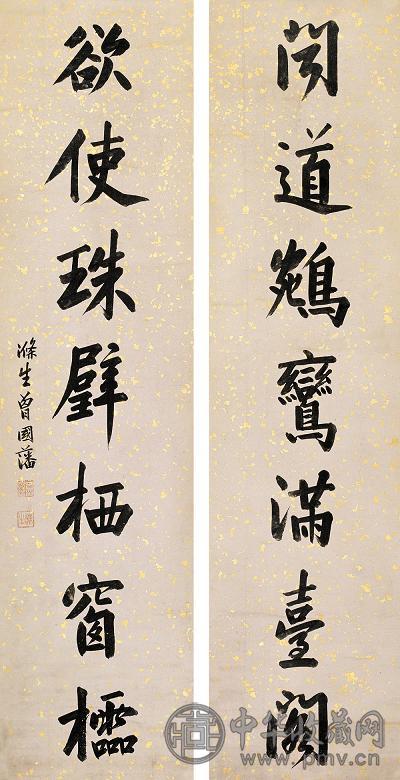 聞道鵷鸞滿臺閣
欲使珠璧栖窗櫺
滌生曾國藩
中华收藏网
www.pmv.cn